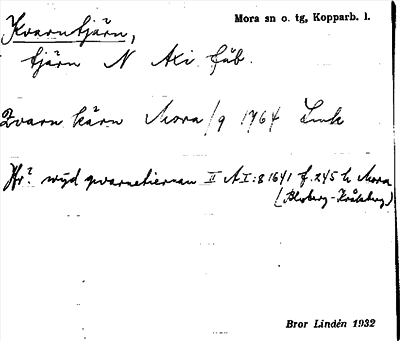 Kvarntjärn,
Mora sn o. tg, Kopparb. l.
tjärn N Axi fäb.
Qvarn kärn Mora/g 1764 Link
Hr? wyd qwarnetiernan II AI:8 1641 f. 245 h Mora
(Blyberg-Kråkberg)
Bror Lindén 1932